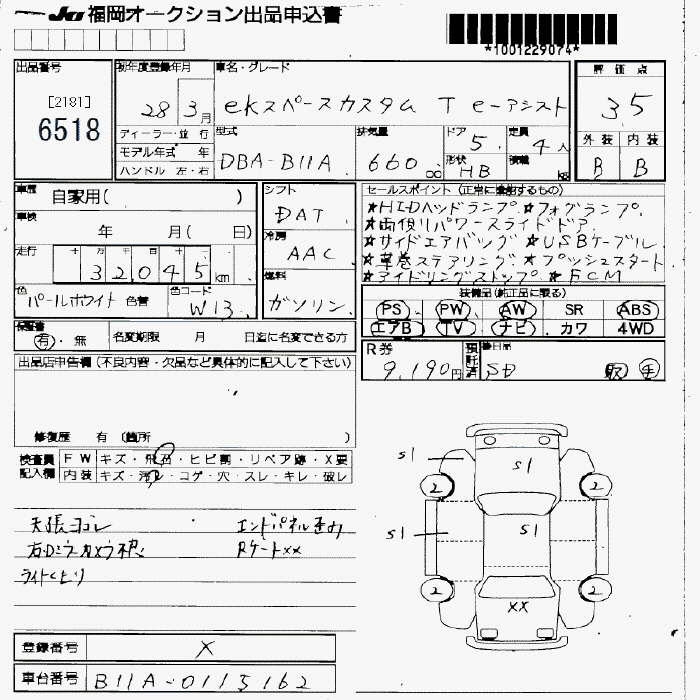 JU 福岡オークション出品申込書
*1001229074*
出品番号
[2181]
6518
初年度登録年月
28 3月
車名・グレード
ekスペースカスタム T e-アシスト
評価点
3.5
外装 内装
B B
ディーラー・並行
モデル年式 年
ハンドル 左・右
型式
DBA-B11A
排気量
660 cc
ドア
5
形状
HB
定員
4人
積載
kg
車歴 自家用( )
車検 年 月( 日)
走行 十 万 千 百 十 一
32,045km
色 パールホワイト 色替
色コード W13
シフト
DAT
冷房
AAC
燃料
ガソリン
セールスポイント(正常に作動するもの)
★HIDヘッドランプ ★フォグランプ
★両側パワースライドドア
★サイドエアバッグ ★USBケーブル
★革巻ステアリング ★プッシュスタート
★アイドリングストップ ★FCM
装備品(純正品に限る)
PS PW AW SR ABS
エアB TV ナビ カワ 4WD
保証書 有・無
名変期限 月 日迄に名変できる方
R券 9,190円
預託済
後日品 SD
取 手
出品店申告欄(不良内容・欠品など具体的に記入して下さい)
修復歴 有(箇所 )
検査員記入欄
FW キズ・飛石・ヒビ割・リペア跡・X要
内装 キズ・汚れ・コゲ・穴・スレ・キレ・破レ
天張ヨゴレ
エンドパネル歪み
Rゲートxx
ライトくもり
S1 S1
2 2
S1 S1
2 2
XX
登録番号 X
車台番号 B11A-0115162